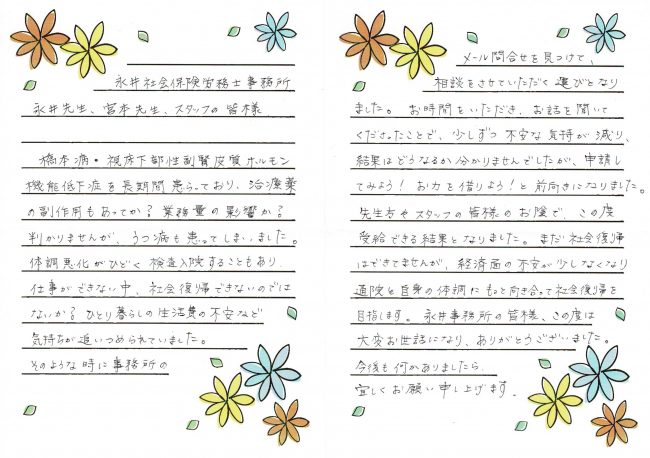 永井社会保険労務士事務所
永井先生、宮本先生、スタッフの皆様
橋本病・視床下部性副腎皮質ホルモン
機能低下症を長期間患らっており、治療薬
の副作用もあってか?業務量の影響か?
判かりませんが、うつ病も患ってしまいました。
体調悪化がひどく検査入院することもあり、
仕事ができない中、社会復帰できないのでは
ないか?ひとり暮らしの生活費の不安など
気持ちが追いつめられていました。
そのような時に事務所の
メール問合せを見つけて、
相談をさせていただく運びとなり
ました。お時間をいただき、お話を聞いて
くださったことで、少しずつ不安な気持が減り、
結果はどうなるか分かりませんでしたが、申請し
てみよう!お力を借りよう!と前向きになりました。
先生方やスタッフの皆様のお陰で、この度
受給できる結果となりました。まだ社会復帰
はできてませんが、経済面の不安が少しなくなり
通院と自身の体調にもっと向き合って社会復帰を
目指します。永井事務所の皆様、この度は
大変お世話になり、ありがとうございました。
今後も何かありましたら
宜しくお願い申し上げます。